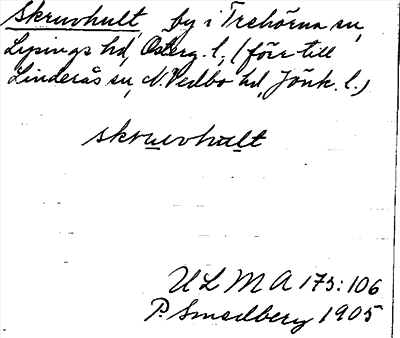 Skruvhult, by i Trehörna sn,
Lysings hd, Österg. l., (förr till
Linderås sn, N. Vedbo hd, Jönk. l.)
skruvhult
ULMA 173:106
P. Smedberg 1905